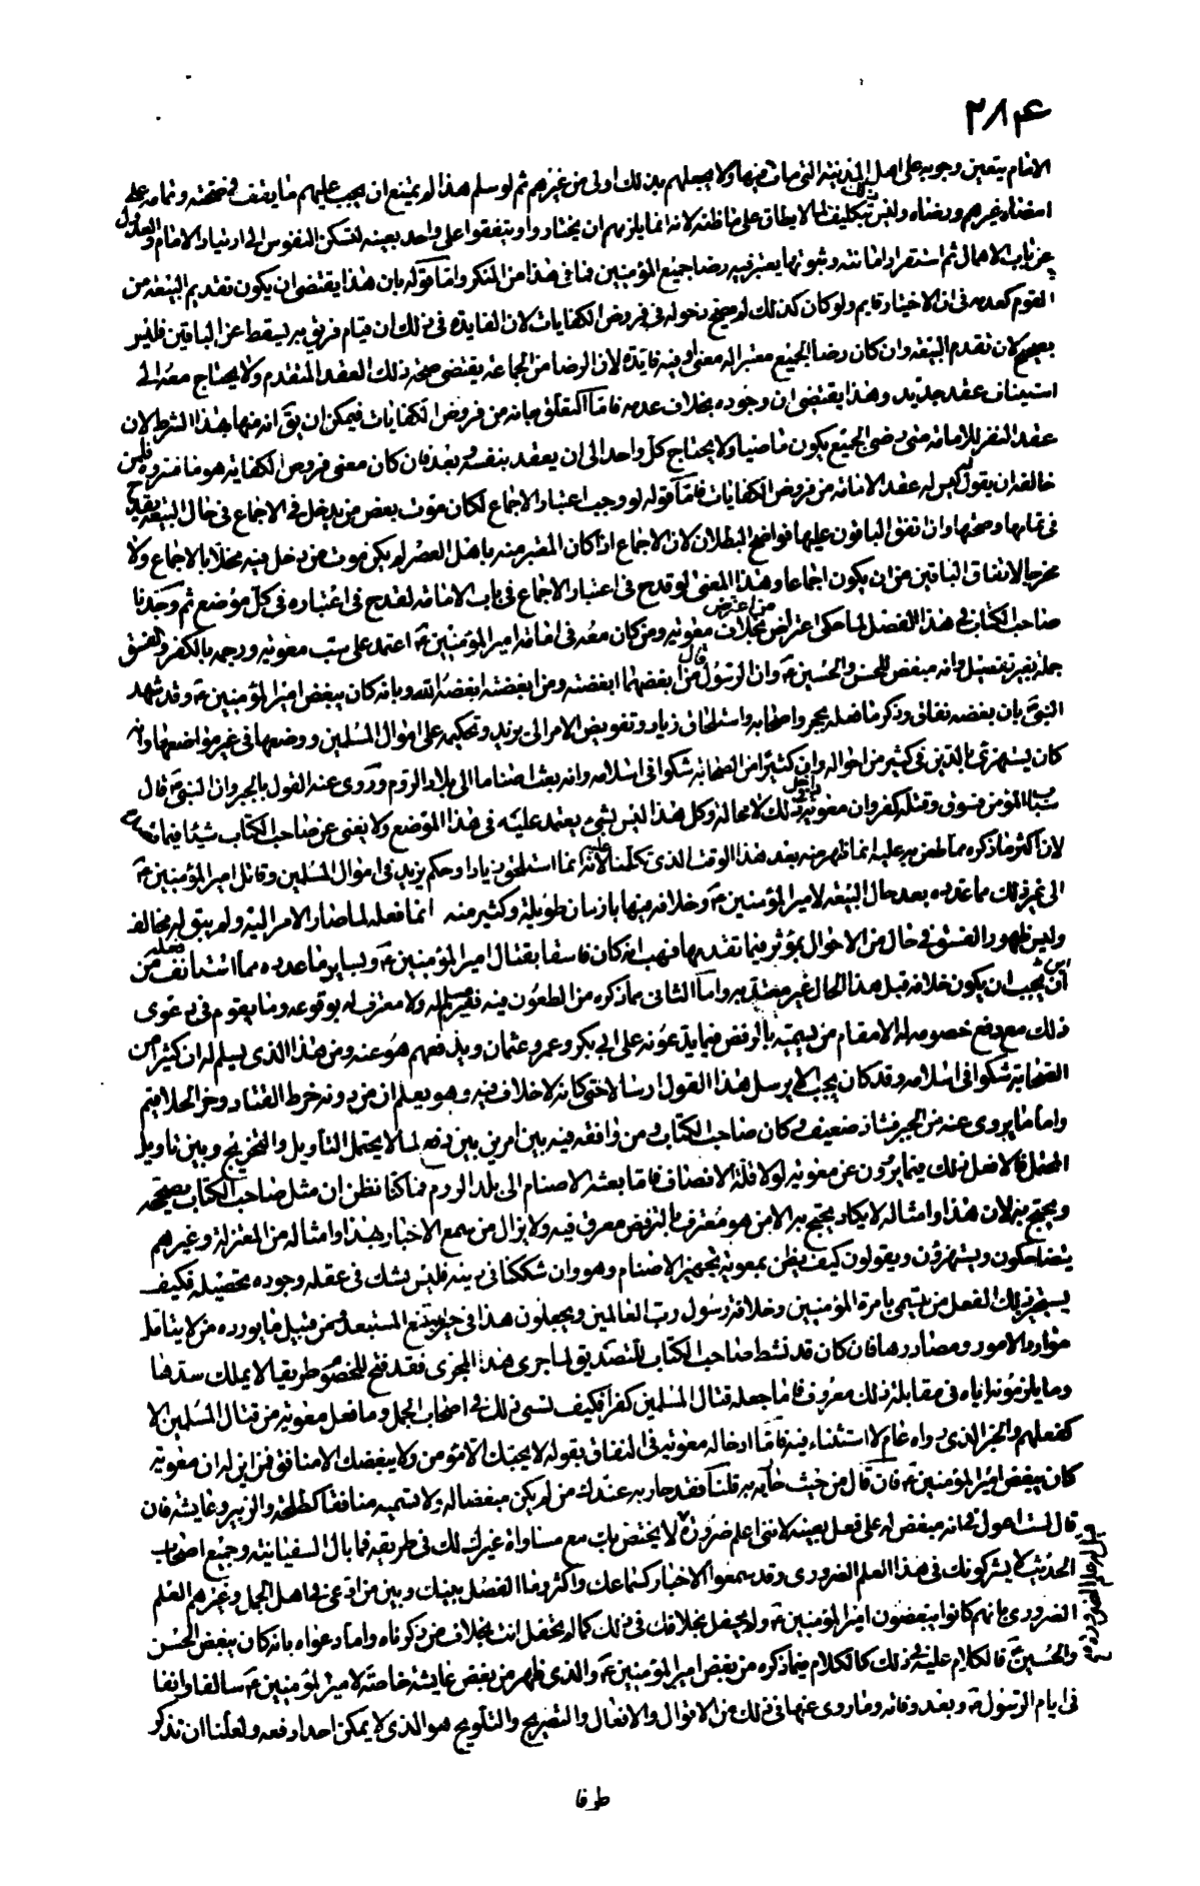 ٢٨۴
الامام يتعين وجوبه على اهل المدينة التى مات فيها ولا يجعلهم بذلك اولى من غيرهم ثم لو سلم هذا لم يمتنع ان يجب عليهم ما يقف فى صحته وتمامه على
امضاء غيرهم ورضاه وليس ذلك بتكليف لما لا يطاق على ما ظنه لانه انما يلزمهم ان يختاروا ويتفقوا على واحد بعينه لتسكن النفوس الى ارتياد الامام والعدول
عن باب الاهمال ثم استقرار امامته وثبوتها يعتبر فيه رضا جميع المؤمنين فما فى هذا من المنكر واما قوله بان هذا يقتضى ان يكون تقديم البيعة من
القوم كعدمه فى ان الاختيار قايم ولو كان كذلك لم يصح دخوله فى فروض الكفايات لان الفايدة فى ذلك ان قيام فريق به يسقط عن الباقين فليس
بصحيح لان تقدم البيعة وان كان رضا الجميع معتبرا له معنى وفيه فايدة لان الرضا من الجماعة يقتضى صحة ذلك العقد المتقدم ولا يحتاج معه الى
استيناف عقد جديد وهذا يقتضى ان وجوده بخلاف عدمه فاما التعلق بانه من فروض الكفايات فيمكن ان يق انه منها بهذا الشرط لان
عقد النفر للامامة متى رضى الجميع يكون ماضيا ولا يحتاج كل واحد الى ان يعقد بنفسه وبعد فان كان معنى فروض الكفاية هو ما فسروه فليس
خالفه ان يقول ليس له عقد الامامة من فروض الكفايات فاما قوله لو وجب اعتبار الاجماع لكان موت بعض من يدخل فى الاجماع فى حال البيعة يقدح
فى تمامها وصحتها وان اتفق الباقون عليها فواضح البطلان لان الاجماع اذا كان المعتبر منه باهل العصر لم يكن موت من دخل فيه مخلا بالاجماع ولا
مخرجا لاتفاق الباقين من ان يكون اجماعا وهذا المعنى لو قدح فى اعتبار الاجماع فى باب الامامة لقدح فى اعتباره فى كل موضع ثم وجدنا
صاحب الكتاب فى هذا الفصل لما حكى اعتراض من اعترض بخلاف معوية ومن كان معه فى امامة امير المؤمنين ع اعتمد على سب معوية ورجمه بالكفر والفسق
جملة بغير تفصيل وانه مبغض للحسن والحسين ع وان الرسول قال من ابغضهما ابغضته ومن ابغضته ابغضه الله وبانه كان يبغض امير المؤمنين ع وقد شهد
النبى ص بان بغضه نفاق وذكر ما فعله بحجر واصحابه واستلحاق زياد وتفويض الامر الى يزيد وتحكيمه على اموال المسلمين ووضعها فى غير مواضعها وانه
كان يستهزئ بالدين فى كثير من احواله وان كثيرا من الصحابة شكوا فى اسلامه وانه بعث اصناما الى بلاد الروم وروى عنه القول بالجبر وان النبى ص قال
سباب المؤمن فسوق وقتله كفر وان معوية داخل فى ذلك لا محالة وكل هذا ليس بشئ يعتمد عليه فى هذا الموضع ولا يغنى عن صاحب الكتاب شيئا فيما
لان اكثر ما ذكره مما طعن به عليه انما ظهر منه بعد هذا الوقت الذى تكلمنا عليه لانه انما استلحق زيادا وحكم يزيد فى اموال المسلمين وقاتل امير المؤمنين ع
الى غير ذلك مما عدده بعد حال البيعة لامير المؤمنين ع وخلافه منها بازمان طويلة وكثير منه انما فعله لما صار الامر اليه ولم يبق له مخالف
وليس ظهور الفسق فى حال من الاحوال يؤثر فيما تقدمها فهب انه كان فاسقا بقتال امير المؤمنين ع وبساير ما عدده مما استانف فعله من
اين يجب ان يكون خلافه قبل هذا الحال غير معتد به واما الثانى مما ذكره من الطعون فيه فغير مسلم له ولا معترف له بوقوعه وما يقوم فى دعوى
ذلك مع دفع خصومه له الا مقام من يسميه بالرفض فيما يدعونه على ابى بكر وعمر وعثمان ويدفعهم هو عنه ومن هذا الذى يسلم له ان كثيرا من
الصحابة شكوا فى اسلامه وقد كان يجب الا يرسل هذا القول ارسالا حتى كانه لا خلاف فيه وهو يعلم ان من دونه خرط القتاد وحز الحلاقيم
واما ما يروى عنه من الجبر فشاذ ضعيف وكان صاحب الكتاب ومن وافقه فيه بين امرين بين دفع لما لا يحتمل التأويل والتخريج وبين تاويل
المحتمل فالا فعل ذلك فيما يرون عن معوية لولا قلة الانصاف فاما بعثه الاصنام الى بلد الروم فما كنا نظن ان مثل صاحب الكتاب يصححه
ويحتج به لان هذا وامثاله لا يكاد يحتج به الا من هو معترف بالترفض معرق فيه ولا يزال من يسمع الاخبار بهذا وامثاله من المعتزلة وغيرهم
يتضاحكون ويستهزؤن ويقولون كيف يظن بمعوية تجهيز الاصنام وهو وان شككنا فى دينه فليس يشك فى عقله وجوده تحصيله فكيف
يستجيز ذلك الفعل من يسمى بامرة المؤمنين وخلافة رسول رب العالمين ويجعلون هذا فى حيز الممتنع المستبعد ومن قبيل ما يورده من لا يتامل
موارد الامور ومصادرها فان كان قد نشط صاحب الكتاب للتصديق لما جرى هذا المجرى فقد فتح للخصوم طريقا لا يملك سدها
وما يلزمونه اياه فى مقابلة ذلك معروف فاما جعله قتال المسلمين كفرا فكيف نسى ذلك فى اصحاب الجمل وما فعل معوية من قتال المسلمين الا
كفعلهم والخبر الذى رواه عام لا استثناء فيه فاما ادخاله معوية فى النفاق بقوله لا يحبك الا مؤمن ولا يبغضك الا منافق فمن اين له ان معوية
كان يبغض امير المؤمنين ع فان قال من حيث حاربه قلنا فقد حاربه عندك من لم يكن مبغضا له ولا تسميه منافقا كطلحة والزبير وعايشة فان
قال لست اعول فى انه مبغض له على فعل بعينه لاننى اعلم ضرورة قيل له علم الضرورة لا يختص بك مع مساواة غيرك لك فى طريقه فما بال السفيانية وجميع اصحاب
الحديث لا يشركونك فى هذا العلم الضرورى وقد سمعوا الاخبار كسماعك واكثر وما الفصل بينك وبين من ادعى فى اهل الجمل وغيرهم العلم
الضرورى بانهم كانوا يبغضون امير المؤمنين ع ولم يحفل بخلافك فى ذلك كما لم تحفل انت بخلاف من ذكرناه واما دعواه بانه كان يبغض الحسن
والحسين ع فالكلام عليه فى ذلك كالكلام فيما ذكره من بغض امير المؤمنين ع والذى ظهر من بغض عايشة خاصة لامير المؤمنين ع سالفا وانفا
فى ايام الرسول ص وبعد وفاته وما روى عنها فى ذلك من الاقوال والافعال والتصريح والتلويح هو الذى لا يمكن احدا دفعه ولعلنا ان نذكر
طرفا